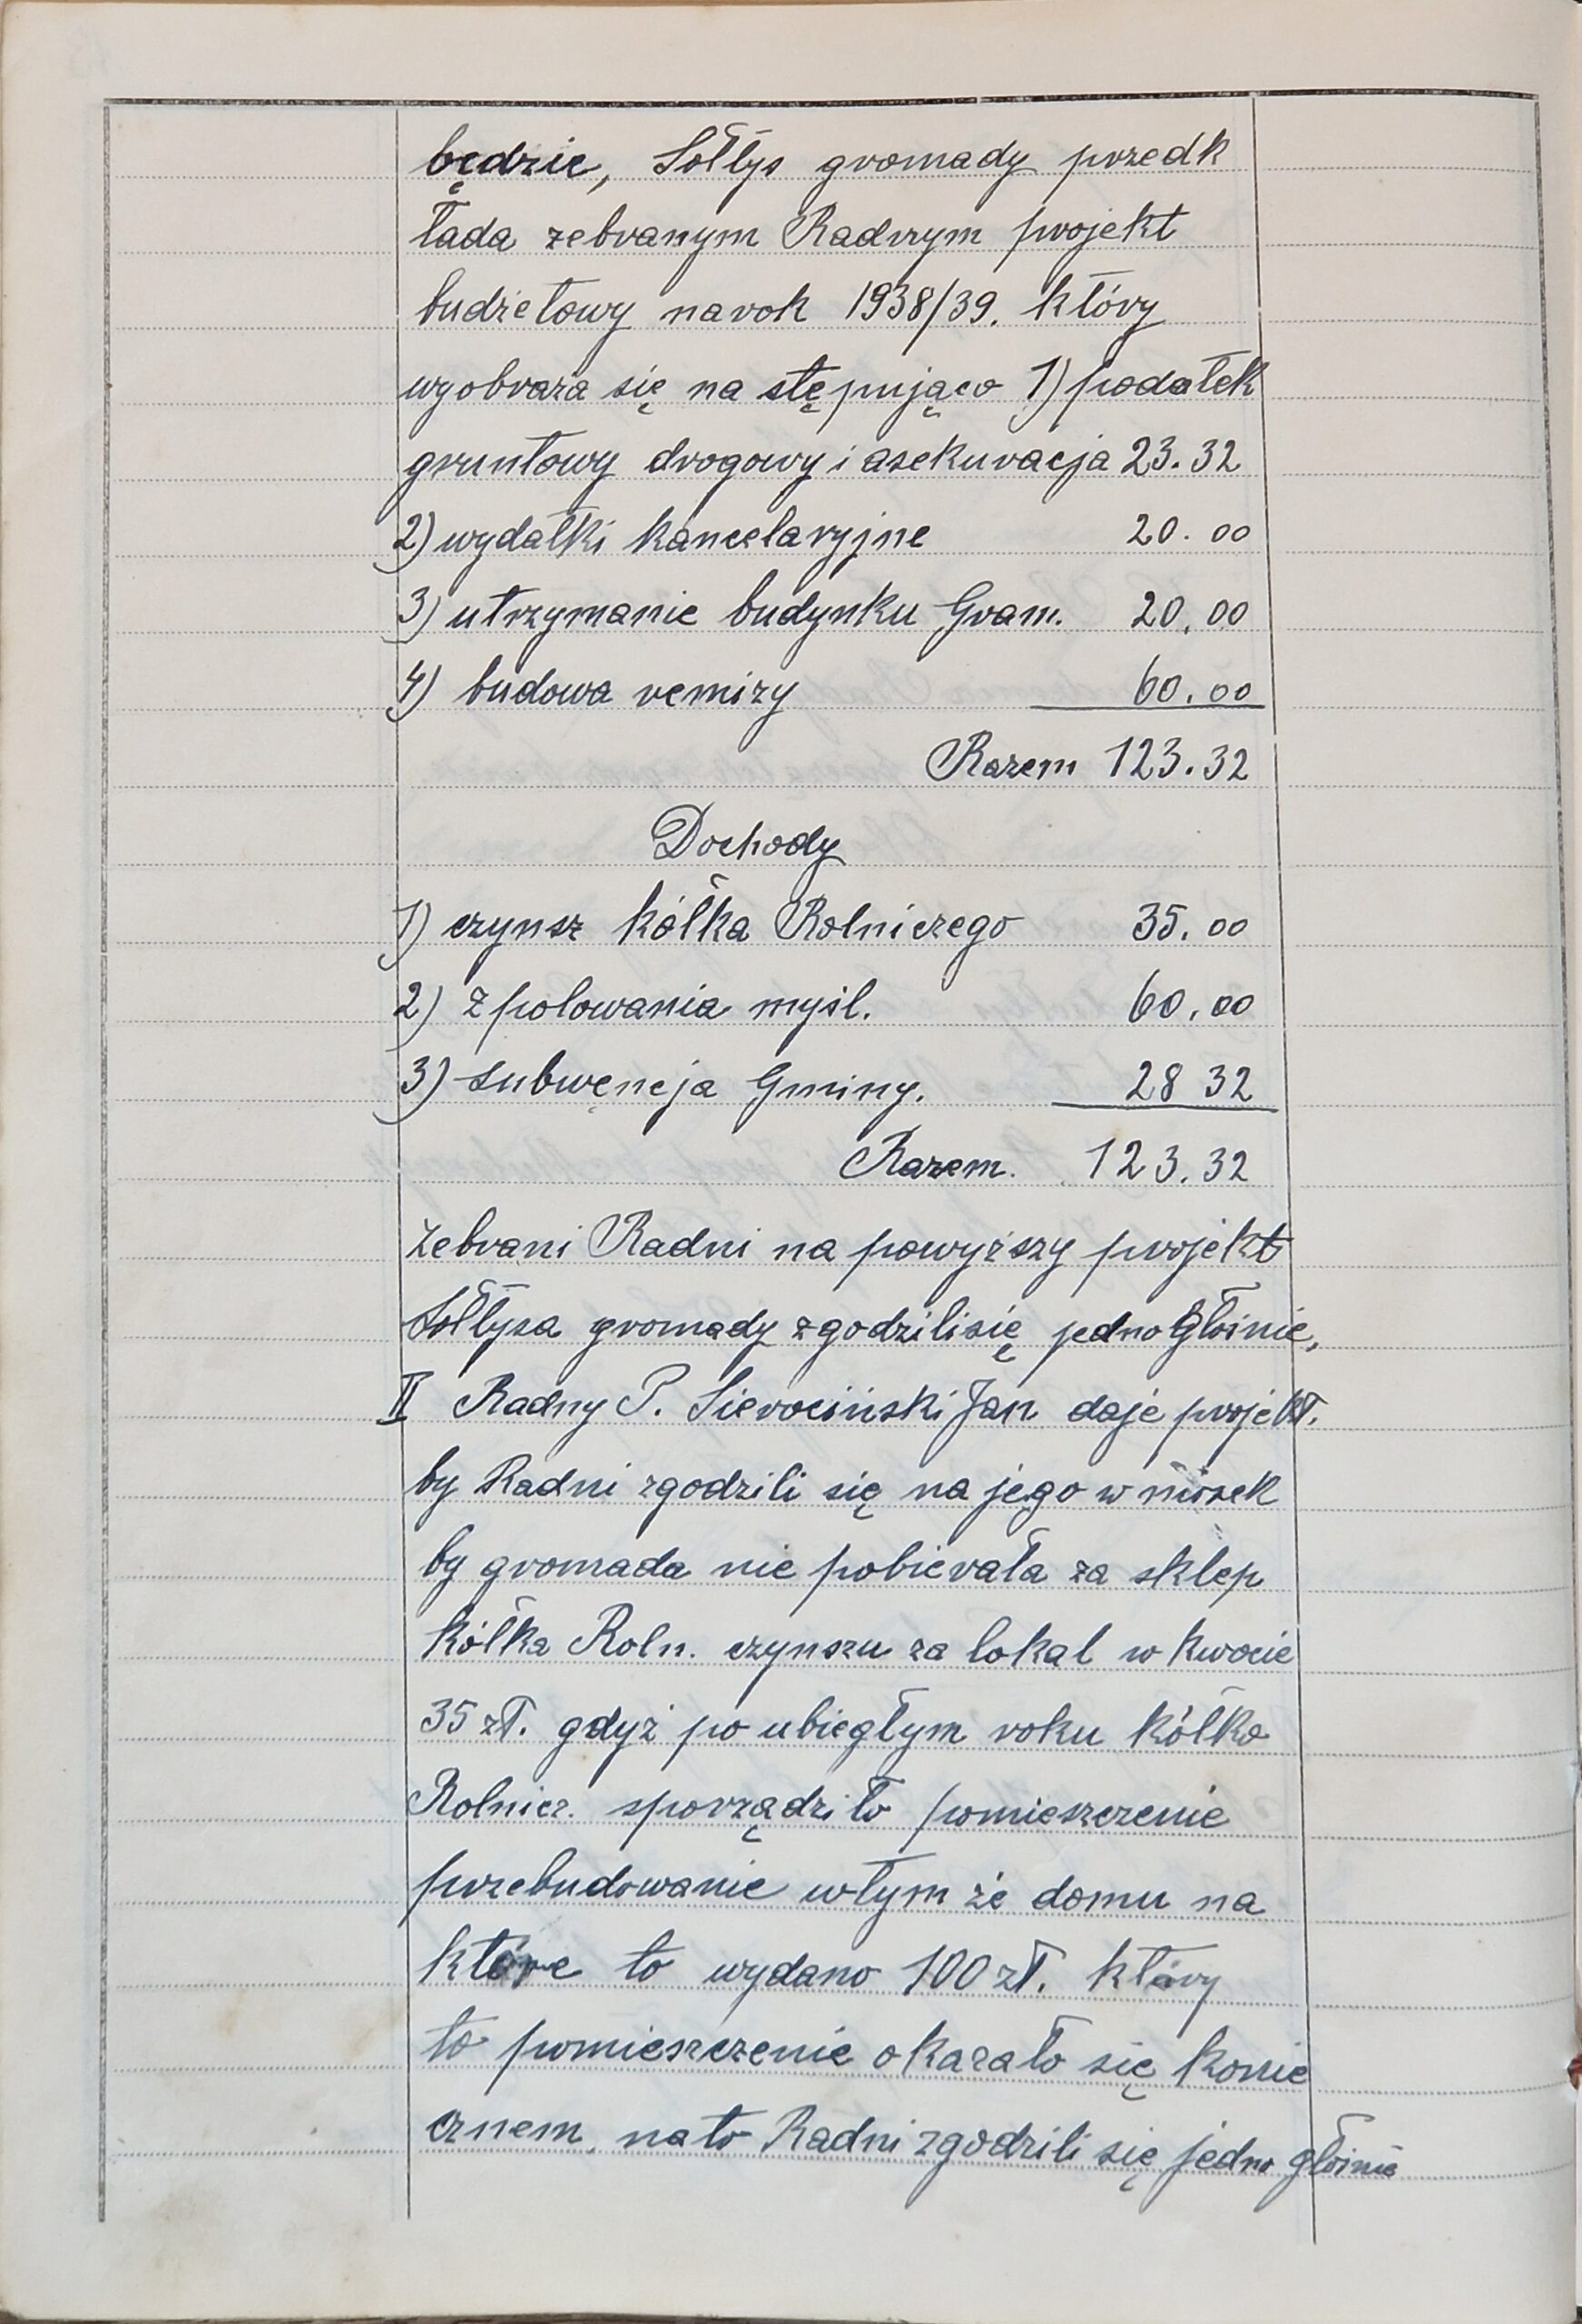 będzie, Sołtys gromady przedk
łada zebranym Radnym projekt
budżetowy na rok 1938/39. który
wyobraża się na stępująco 1) podatek
gruntowy drogowy i asekuracja 23.32
2) wydatki kancelaryjne 20.00
3) utrzymanie budynku Grom. 20.00
4) budowa remizy 60.00
Razem 123.32
Dochody
1) czynsz kółka Rolniczego 35.00
2) z polowania myśl. 60.00
3) subwęncja Gminy. 28 32
Razem. 123.32
Zebrani Radni na powyższy projekt
Sołtysa gromady zgodzili się jednogłośnie,
II Radny P. Sierociński Jan daje projekt.
by Radni zgodzili się na jego w niosek
by gromada nie pobierała za sklep
kółka Roln. czynszu za lokal w kwocie
35 zł. gdyż po ubiegłym roku kółko
Rolnicz. sporządziło pomieszczenie
przebudowanie w tym że domu na
które to wydano 100 zł. który
to pomieszczenie okazało się konie
cznem, na to Radni zgodzili się jedno głośnie